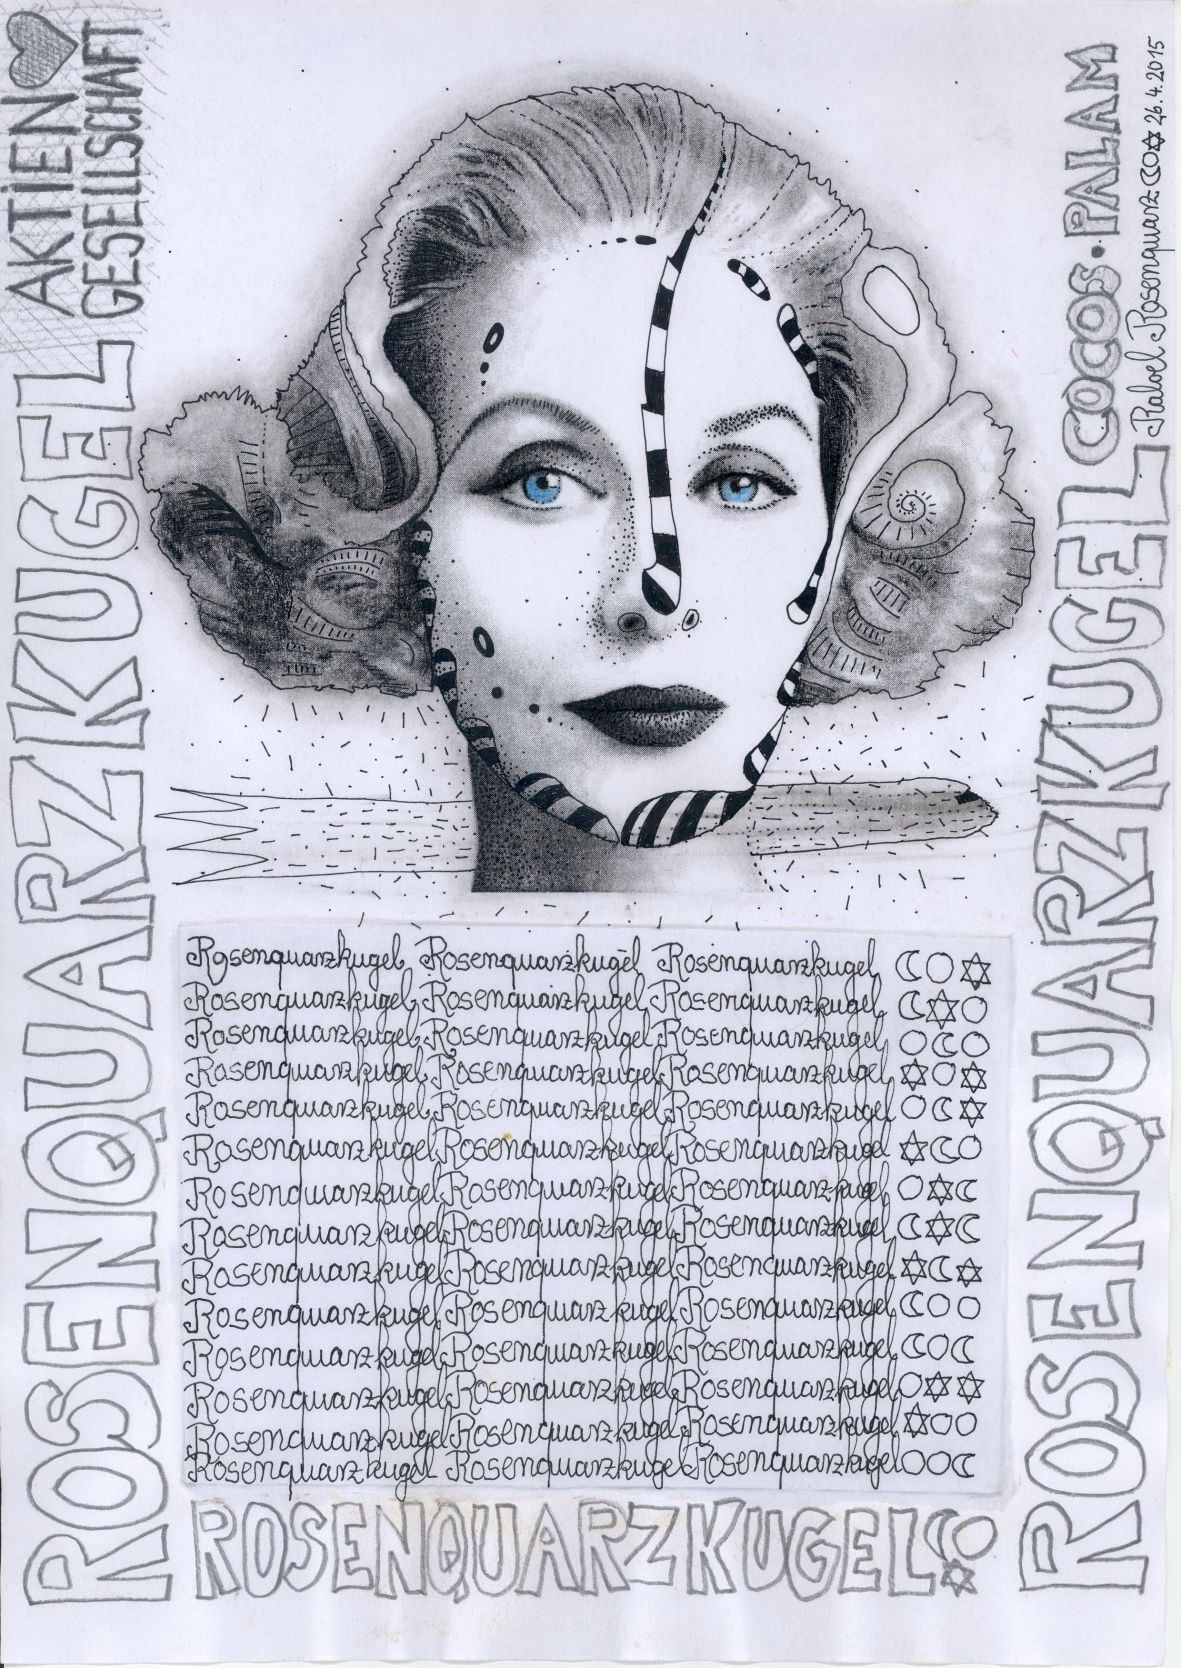 AKTIEN♥
GESELLSCHAFT
ROSENQUARZKUGEL
COCOS•PALAM
Rosenquarz☾○✡ 26.4.2015
ROSENQUARZKUGEL
Rosenquarzkugel Rosenquarzkugel Rosenquarzkugel ☾○✡
Rosenquarzkugel Rosenquarzkugel Rosenquarzkugel ☾✡○
Rosenquarzkugel Rosenquarzkugel Rosenquarzkugel ○☾○
Rosenquarzkugel Rosenquarzkugel Rosenquarzkugel ✡○✡
Rosenquarzkugel Rosenquarzkugel Rosenquarzkugel ○☾✡
Rosenquarzkugel Rosenquarzkugel Rosenquarzkugel ✡☾○
Rosenquarzkugel Rosenquarzkugel Rosenquarzkugel ○✡☾
Rosenquarzkugel Rosenquarzkugel Rosenquarzkugel ☾✡☾
Rosenquarzkugel Rosenquarzkugel Rosenquarzkugel ✡☾✡
Rosenquarzkugel Rosenquarzkugel Rosenquarzkugel ☾○○
Rosenquarzkugel Rosenquarzkugel Rosenquarzkugel ☾○☾
Rosenquarzkugel Rosenquarzkugel Rosenquarzkugel ○✡✡
Rosenquarzkugel Rosenquarzkugel Rosenquarzkugel ✡○○
Rosenquarzkugel Rosenquarzkugel Rosenquarzkugel ○○☾
ROSENQUARZKUGEL☾○✡